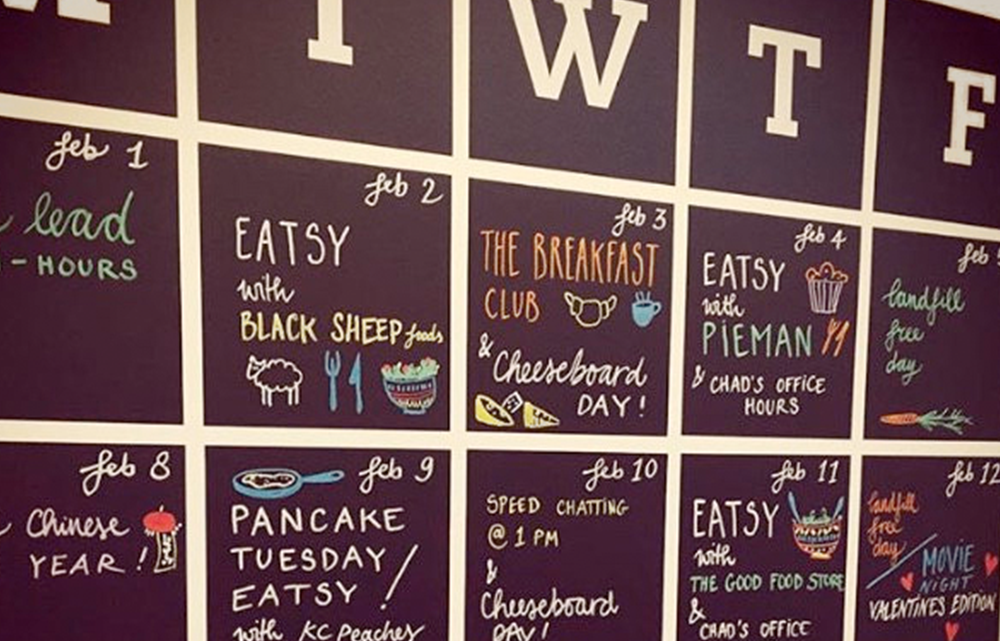 T
W
T
F
feb 1
lead
- HOURS
feb 2
EATSY
with
BLACK SHEEP foods
feb 3
THE BREAKFAST
CLUB
& Cheeseboard
DAY!
feb 4
EATSY
with
PIEMAN
& CHAD'S OFFICE
HOURS
feb
landfill
free
day
feb 8
Chinese
YEAR!
feb 9
PANCAKE
TUESDAY/
EATSY!
with KC Peaches
feb 10
SPEED CHATTING
@ 1 PM
&
Cheeseboard
DAY!
feb 11
EATSY
with
THE GOOD FOOD STORE
&
CHAD'S OFFICE
feb 12
landfill
free
day
MOVIE
NIGHT
VALENTINES EDITION